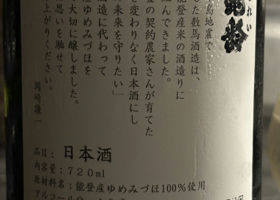 れい
島地震で
した数馬酒造は、
能登産米の酒造りに
んできました。
の契約農家さんが育てた
変わりなく日本酒にし
未来を守りたい」
酒造に代わって
産ゆめみづほを
大切に醸しました。
思いを馳せて
上がりください。
岡崎謙一
品目：日本酒
内容量：720ml
原材料名：能登産ゆめみづほ100％使用
アルコール